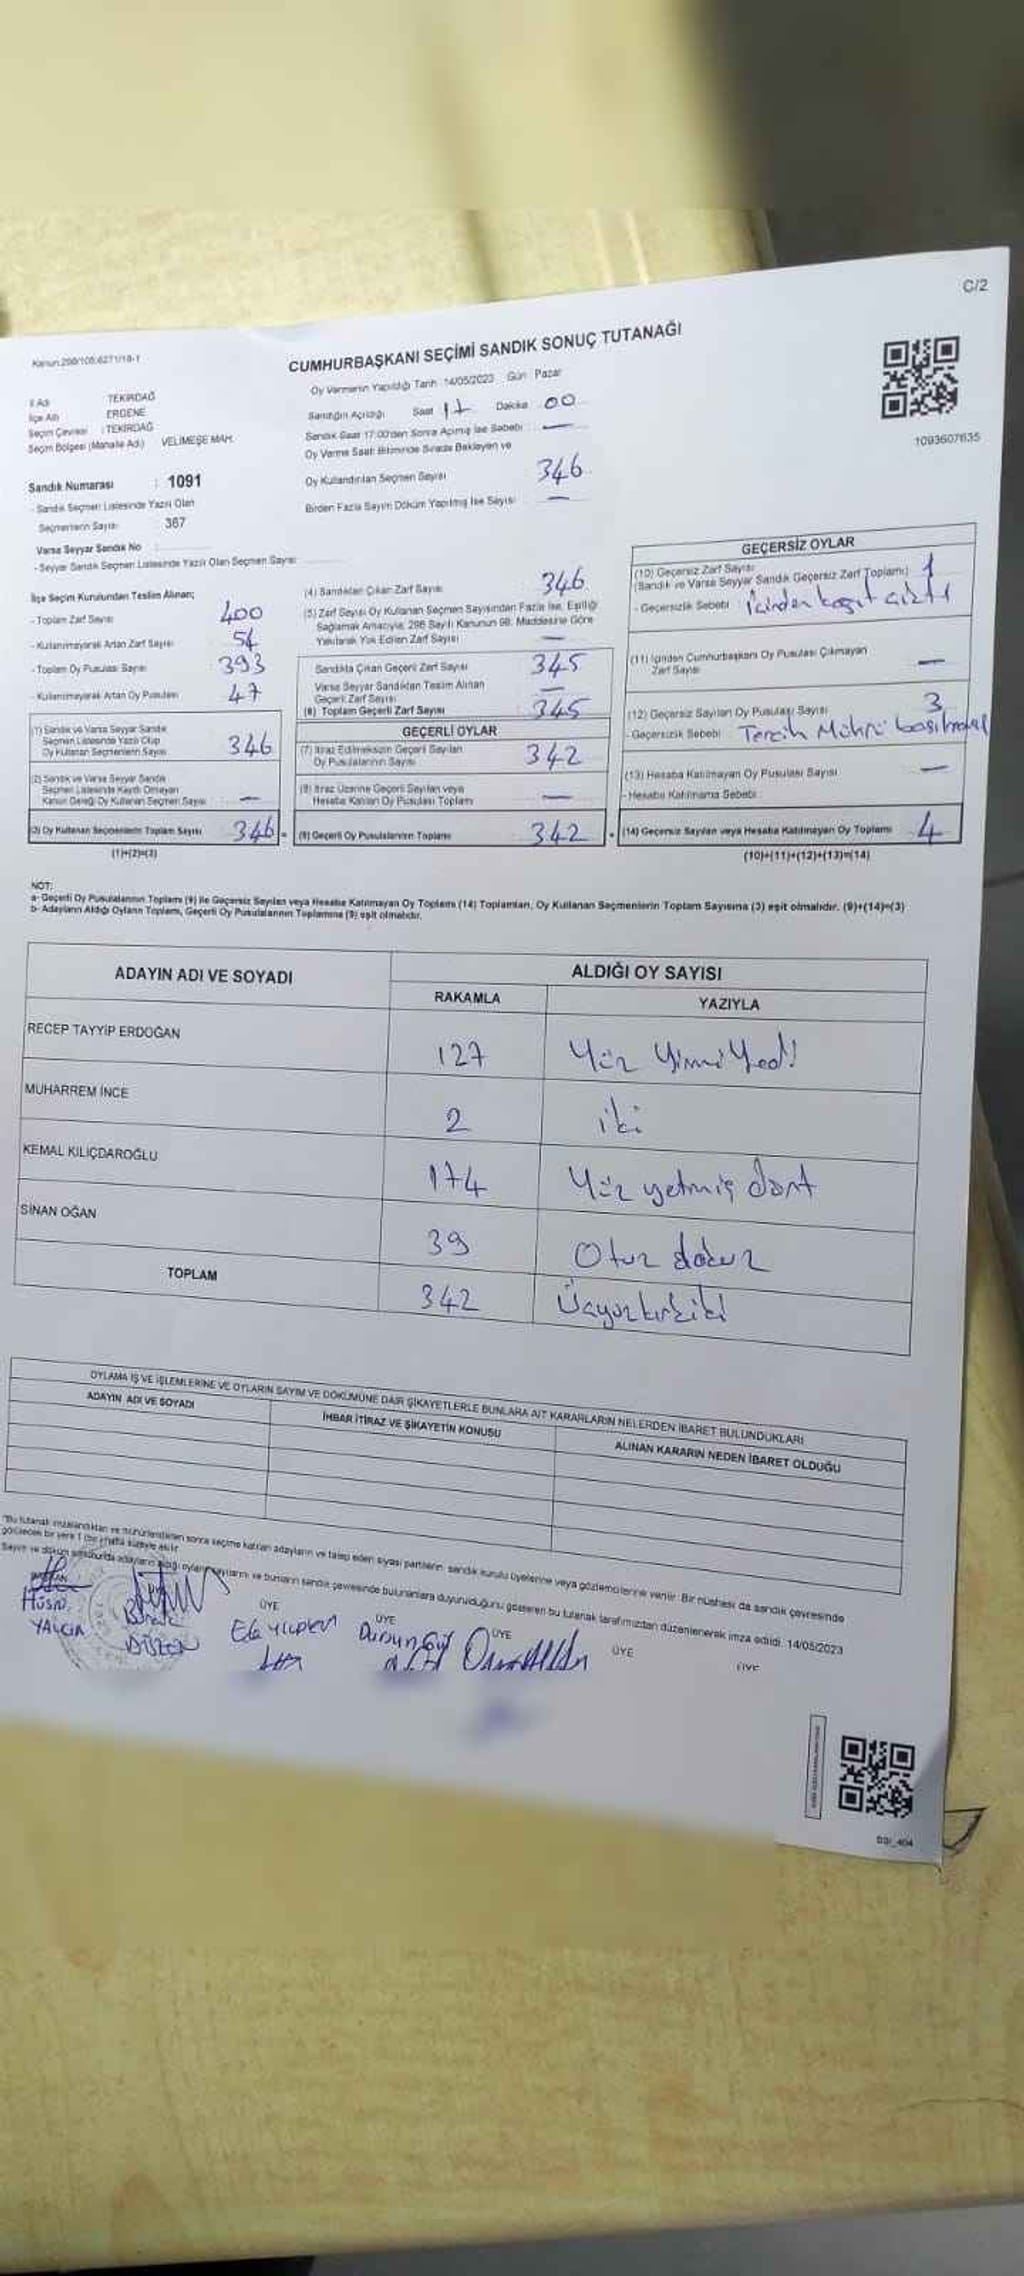 C/2
Kanun:298/105;6271/18-1
CUMHURBAŞKANI SEÇİMİ SANDIK SONUÇ TUTANAĞI
1093607635
İl Adı TEKİRDAĞ
İlçe Adı ERGENE
Seçim Çevresi : TEKİRDAĞ
Seçim Bölgesi (Mahalle Adı) VELİMEŞE MAH.
Sandık Numarası : 1091
- Sandık Seçmen Listesinde Yazılı Olan
Seçmenlerin Sayısı 367
Varsa Seyyar Sandık No
- Seyyar Sandık Seçmen Listesinde Yazılı Olan Seçmen Sayısı
Oy Vermenin Yapıldığı Tarih 14/05/2023 Gün Pazar
Sandığın Açıldığı Saat 17 Dakika 00
Sandık Saat 17:00'den Sonra Açılmış İse Sebebi —
Oy Verme Saati Bitiminde Sırada Bekleyen ve
Oy Kullandırılan Seçmen Sayısı 346
Birden Fazla Sayım Döküm Yapılmış İse Sayısı —
İlçe Seçim Kurulundan Teslim Alınan;
- Toplam Zarf Sayısı 400
- Kullanılmayarak Artan Zarf Sayısı 54
- Toplam Oy Pusulası Sayısı 393
- Kullanılmayarak Artan Oy Pusulası 47
(1) Sandık ve Varsa Seyyar Sandık
Seçmen Listesinde Yazılı Olup
Oy Kullanan Seçmenlerin Sayısı 346
(2) Sandık ve Varsa Seyyar Sandık
Seçmen Listesinde Kaydı Olmayan
Kanun Gereği Oy Kullanan Seçmen Sayısı —
(3) Oy Kullanan Seçmenlerin Toplam Sayısı 346 =
(1)+(2)=(3)
(4) Sandıktan Çıkan Zarf Sayısı 346
(5) Zarf Sayısı Oy Kullanan Seçmen Sayısından Fazla İse, Eşitliği
Sağlamak Amacıyla, 298 Sayılı Kanunun 98. Maddesine Göre
Yakılarak Yok Edilen Zarf Sayısı —
Sandıkta Çıkan Geçerli Zarf Sayısı 345
Varsa Seyyar Sandıktan Teslim Alınan
Geçerli Zarf Sayısı —
(6) Toplam Geçerli Zarf Sayısı 345
GEÇERLİ OYLAR
(7) İtiraz Edilmeksizin Geçerli Sayılan
Oy Pusulalarının Sayısı 342
(8) İtiraz Üzerine Geçerli Sayılan veya
Hesaba Katılan Oy Pusulası Toplamı —
(9) Geçerli Oy Pusulalarının Toplamı 342 +
GEÇERSİZ OYLAR
(10) Geçersiz Zarf Sayısı 1
(Sandık ve Varsa Seyyar Sandık Geçersiz Zarf Toplamı)
- Geçersizlik Sebebi : içinden kağıt çıktı
(11) İçinden Cumhurbaşkanı Oy Pusulası Çıkmayan
Zarf Sayısı —
(12) Geçersiz Sayılan Oy Pusulası Sayısı 3
- Geçersizlik Sebebi Tercih Mührü basılmadı
(13) Hesaba Katılmayan Oy Pusulası Sayısı —
- Hesaba Katılmama Sebebi
(14) Geçersiz Sayılan veya Hesaba Katılmayan Oy Toplamı 4
(10)+(11)+(12)+(13)=(14)
NOT:
a- Geçerli Oy Pusulalarının Toplamı (9) ile Geçersiz Sayılan veya Hesaba Katılmayan Oy Toplamı (14) Toplamları, Oy Kullanan Seçmenlerin Toplam Sayısına (3) eşit olmalıdır. (9)+(14)=(3)
b- Adayların Aldığı Oyların Toplamı, Geçerli Oy Pusulalarının Toplamına (9) eşit olmalıdır.
ADAYIN ADI VE SOYADI ALDIĞI OY SAYISI
RAKAMLA YAZIYLA
RECEP TAYYİP ERDOĞAN 127 Yüz Yirmi Yedi
MUHARREM İNCE 2 iki
KEMAL KILIÇDAROĞLU 174 Yüz yetmiş dört
SİNAN OĞAN 39 Otuz dokuz
TOPLAM 342 Üçyüzkırkiki
OYLAMA İŞ VE İŞLEMLERİNE VE OYLARIN SAYIM VE DÖKÜMÜNE DAİR ŞİKAYETLERLE BUNLARA AİT KARARLARIN NELERDEN İBARET BULUNDUKLARI
ADAYIN ADI VE SOYADI İHBAR İTİRAZ VE ŞİKAYETİN KONUSU ALINAN KARARIN NEDEN İBARET OLDUĞU
"Bu tutanak imzalandıktan ve mühürlendikten sonra seçime katılan adayların ve talep eden siyasi partilerin sandık kurulu üyelerine veya gözlemcilerine verilir. Bir nüshası da sandık çevresinde
görülecek bir yere 1 (bir) hafta süreyle asılır.
Sayım ve döküm sonucunda adayların aldığı oyların sayılarını ve bunların sandık çevresinde bulunanlara duyurulduğunu gösteren bu tutanak tarafımızdan düzenlenerek imza edildi. 14/05/2023
ÜYE ÜYE ÜYE ÜYE ÜYE
YALÇIN